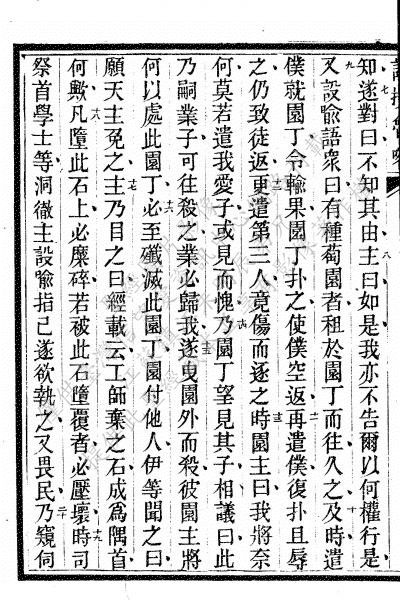 知遂對曰不知其由主曰如是我亦不告爾以何權行是
又設喻語衆曰有種萄園者租於園丁而往久之及時遣
僕就園丁令輸果園丁扑之使僕空返再遣僕復扑且辱
之仍致徒返更遣第三人竟傷而逐之時園主曰我將奈
何莫若遣我愛子或見而愧乃園丁望見其子相議曰此
乃嗣業子可往殺之業必歸我遂曳園外而殺彼園主將
何以處此園丁必至殲滅此園丁園付他人伊等聞之曰
願天主免之主乃目之曰經載云工師棄之石成爲隅首
何歟凡墮此石上必糜碎若被此石墮覆者必壓壞時司
祭首學士等洞徹主設喻指己遂欲執之又畏民乃窺伺